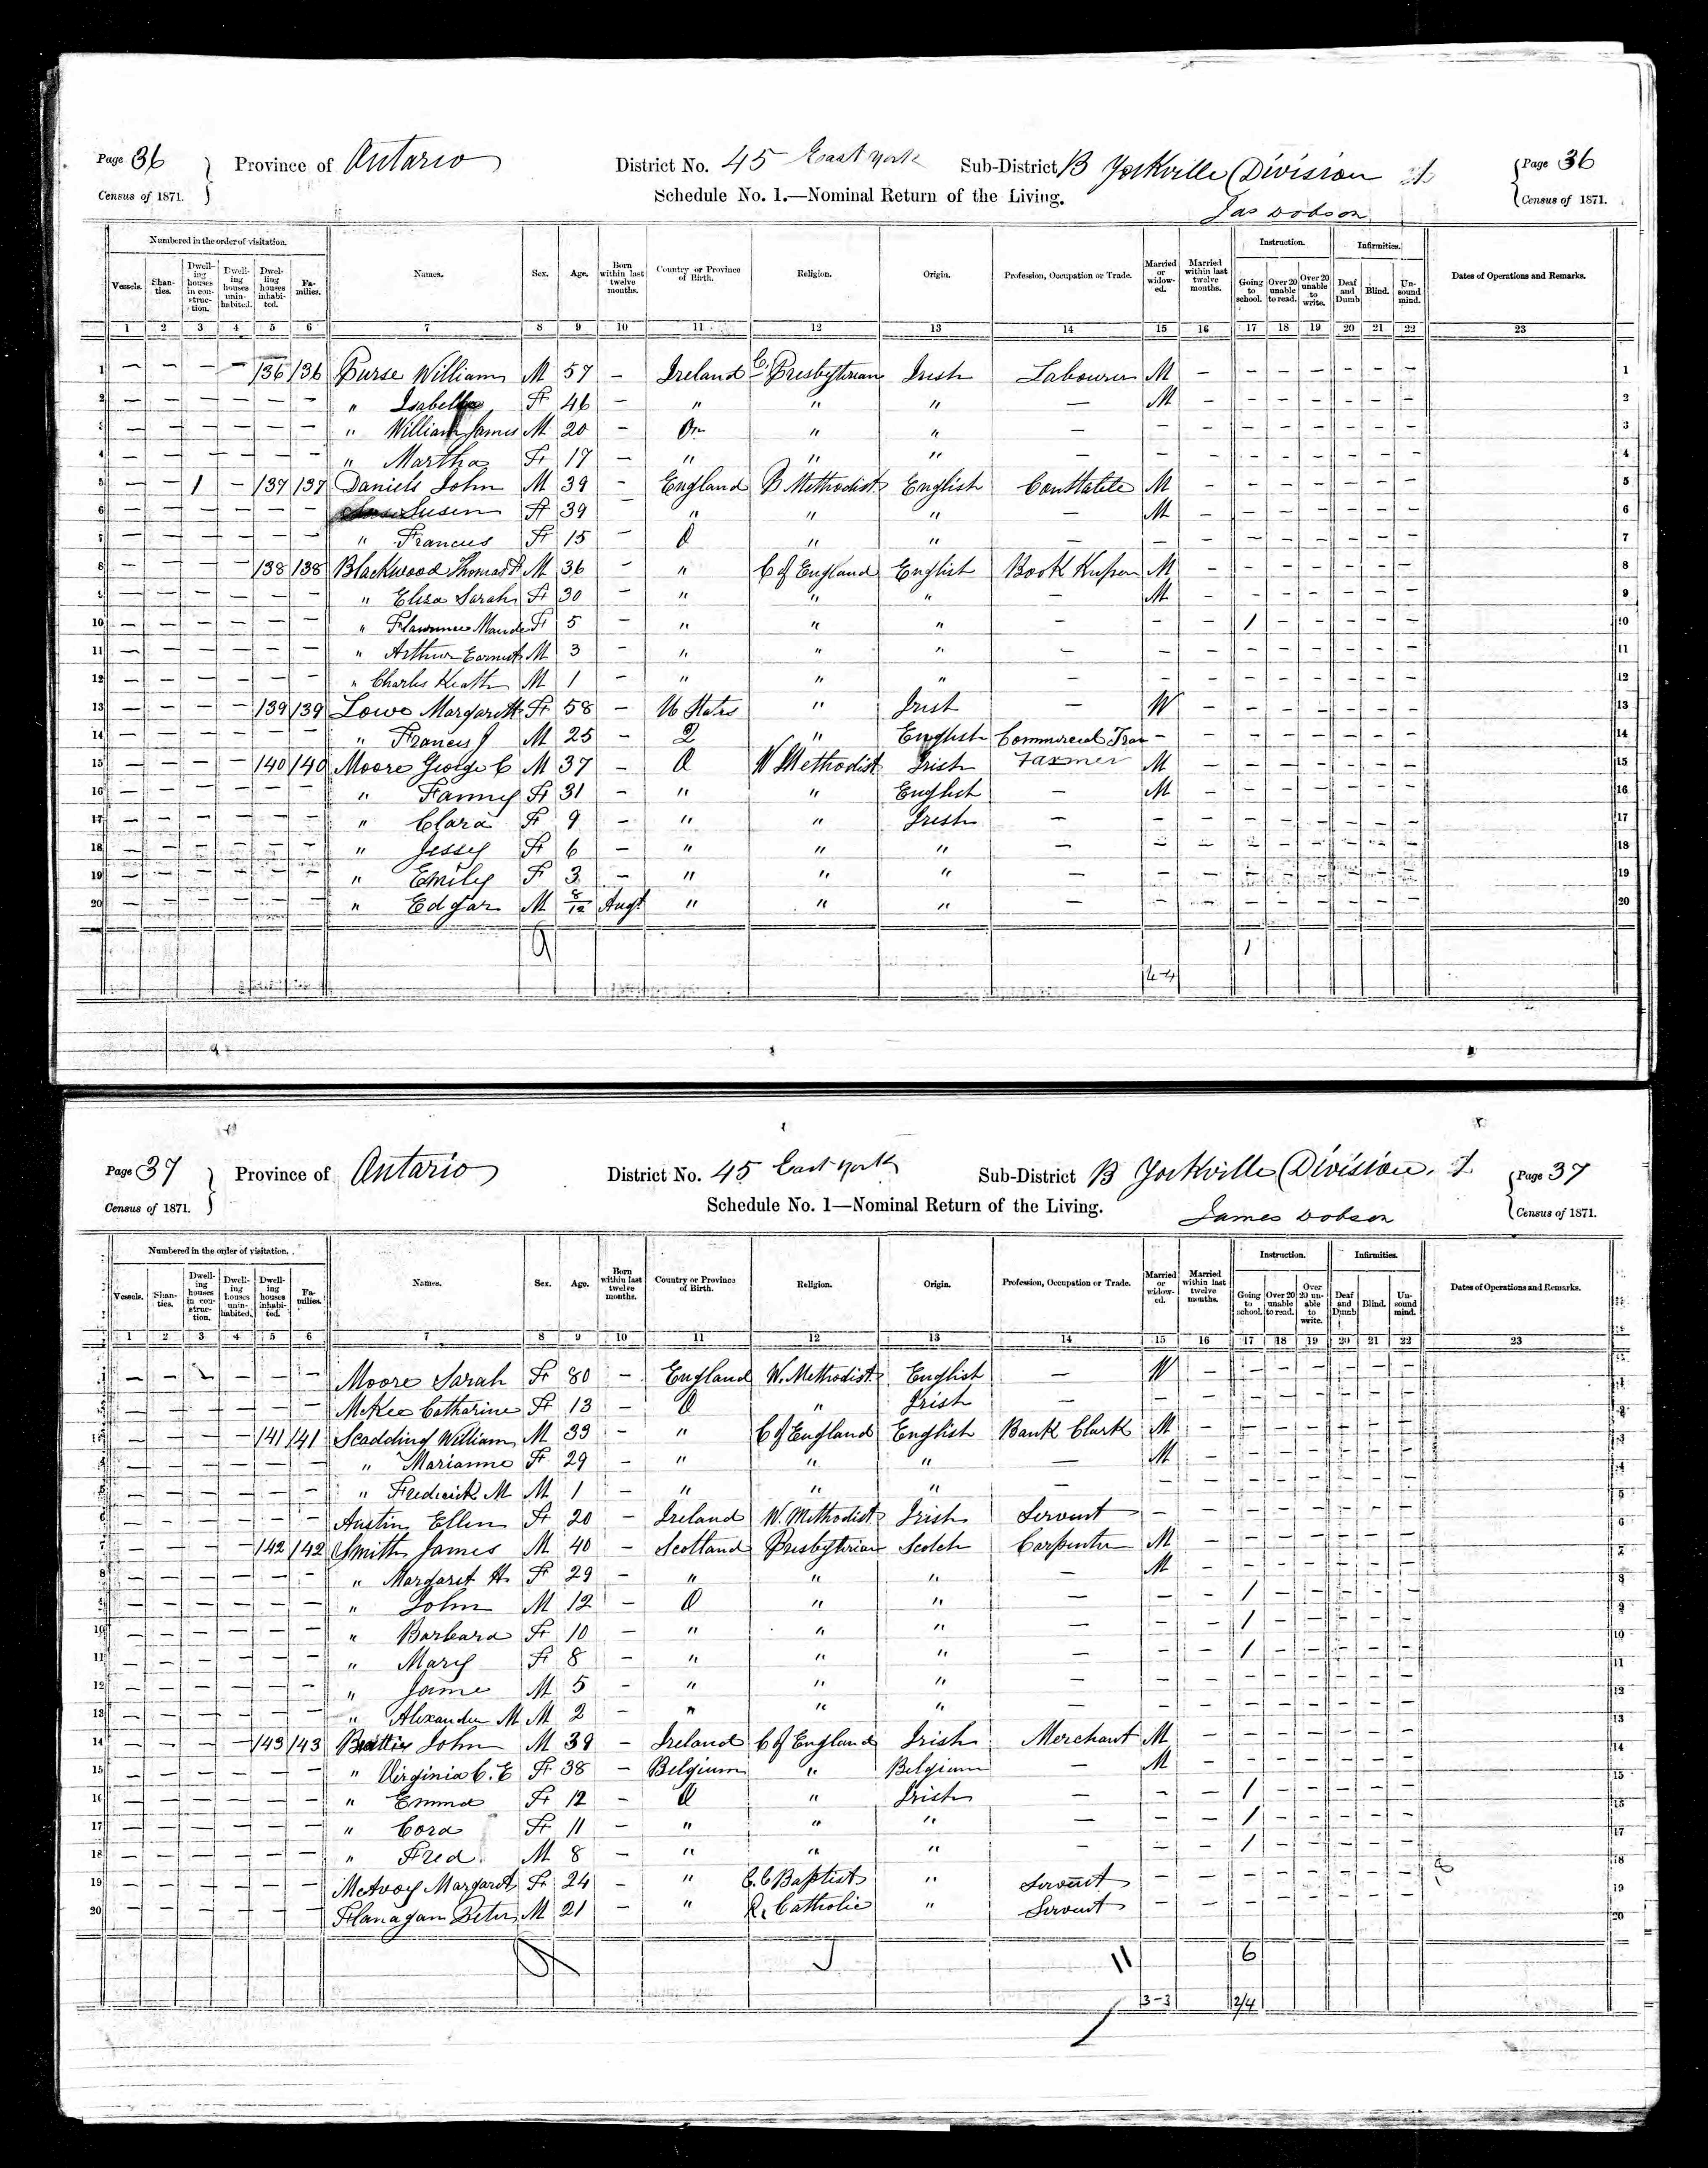 Page 36 Province of Ontario District No. 45 East York Sub-District B Yorkville Division Page 36
Census of 1871. Schedule No. 1.—Nominal Return of the Living. Census of 1871.
Jas Dobson
Numbered in the order of visitation. Instruction. Infirmities.
Vessels. Shanties. Dwelling houses in construction. Dwelling houses uninhabited. Dwelling houses inhabited. Families. Names. Sex. Age. Born within last twelve months. Country or Province of Birth. Religion. Origin. Profession, Occupation or Trade. Married or widowed. Married within last twelve months. Going to school. Over 20 unable to read. Over 20 unable to write. Deaf and Dumb Blind. Unsound mind. Dates of Operations and Remarks.
1 2 3 4 5 6 7 8 9 10 11 12 13 14 15 16 17 18 19 20 21 22 23
1 — — — — 136 136 Purse William M 57 — Ireland C. Presbyterian Irish Labourer M — — — — — — — 1
2 — — — — — — " Isabella F 46 — " " " — M — — — — — — — 2
3 — — — — — — " William James M 20 — On " " — — — — — — — — — 3
4 — — — — — — " Martha F 17 — " " " — — — — — — — — — 4
5 — — 1 — 137 137 Daniels John M 39 — England B Methodist English Constable M — — — — — — — 5
6 — — — — — — Susen F 39 " " " — M — — — — — — — 6
7 — — — — — — " Frances F 15 — O " " — — — — — — — — — 7
8 — — — — 138 138 Blackwood Thomas M 36 — " C of England English Book Keeper M — — — — — — — 8
9 — — — — — — " Eliza Sarah F 30 — " " " — M — — — — — — — 9
10 — — — — — — " Flawrence Maude F 5 — " " " — — — 1 — — — — — 10
11 — — — — — — " Arthur Earnest M 3 — " " " — — — — — — — — — 11
12 — — — — — — " Charles Keath M 1 — " " " — — — — — — — — — 12
13 — — — — 139 139 Lowe Margarett F 58 — U States " Irish — W — — — — — — — 13
14 — — — — — — " Francis J M 25 — Q " English Commercial Trav — — — — — — — — 14
15 — — — — 140 140 Moore George C M 37 — O W Methodist Irish Farmer M — — — — — — — 15
16 — — — — — — " Fanny F 31 — " " English — M — — — — — — — 16
17 — — — — — — " Clara F 9 — " " Irish — — — — — — — — — 17
18 — — — — — — " Jessy F 6 — " " " — — — — — — — — — 18
19 — — — — — — " Emily F 3 — " " " — — — — — — — — — 19
20 — — — — — — " Edgar M 8/12 Augt " " " — — — — — — — — — 20
9 1
4-4
Page 37 Province of Ontario District No. 45 East York Sub-District B Yorkville Division. Page 37
Census of 1871. Schedule No. 1—Nominal Return of the Living. Census of 1871.
James Dobson
Numbered in the order of visitation. Instruction. Infirmities.
Vessels. Shanties. Dwelling houses in construction. Dwelling houses uninhabited. Dwelling houses inhabited. Families. Names. Sex. Age. Born within last twelve months. Country or Province of Birth. Religion. Origin. Profession, Occupation or Trade. Married or widowed. Married within last twelve months. Going to school. Over 20 unable to read. Over 20 unable to write. Deaf and Dumb Blind. Unsound mind. Dates of Operations and Remarks.
1 2 3 4 5 6 7 8 9 10 11 12 13 14 15 16 17 18 19 20 21 22 23
— — — — — Moore Sarah F 80 — England W. Methodist English — W — — — — — — —
— — — — — — McKee Catharine F 13 — O " Irish — — — — — — — — — 2
— — — — 141 141 Scadding William M 33 — " C of England English Bank Clark M — — — — — — — 3
— — — — — — " Marianne F 29 — " " " — M — — — — — — — 4
5 — — — — — — " Frederick M M 1 — " " " — — — — — — — — — 5
6 — — — — — — Austin Ellen F 20 — Ireland W. Methodist Irish Servant — — — — — — — — 6
7 — — — — 142 142 Smith James M 40 — Scotland Presbyterian Scotch Carpenter M — — — — — — — 7
8 — — — — — — " Margaret H. F 29 — " " " — M — — — — — — — 8
9 — — — — — — " John M 12 — O " " — — — 1 — — — — — 9
10 — — — — — — " Barbara F 10 — " " " — — — 1 — — — — — 10
11 — — — — — — " Mary F 8 — " " " — — — 1 — — — — — 11
12 — — — — — — " Jame M 5 — " " " — — — — — — — — — 12
13 — — — — — — " Alexander M M 2 — " " " — — — — — — — — — 13
14 — — — — 143 143 Beattie John M 39 — Ireland C of England Irish Merchant M — — — — — — — 14
15 — — — — — — " Virginia C. E F 38 — Belgium " Belgium — M — — — — — — — 15
16 — — — — — — " Emma F 12 — O " Irish — — — 1 — — — — — 16
17 — — — — — — " Cora F 11 — " " " — — — 1 — — — — — 17
18 — — — — — — " Fred. M 8 — " " " — — — 1 — — — — — 18
19 — — — — — — McAvoy Margaret F 24 — " C. C Baptist " Servant — — — — — — — — 19
20 — — — — — — Flanagan Peter M 21 — " R. Catholic " Servant — — — — — — — — 20
9 11 6
3-3 2/4